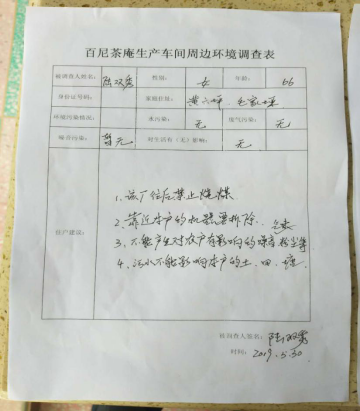 百尼茶庵生产车间周边环境调查表
被调查人姓名: 陆双秀 性别: 女 年龄: 66
身份证号码: 家庭住址: 黄六坪
环境污染情况: 水污染: 无 废气污染: 无
噪音污染: 暂无 对生活有(无)影响: 无
住户建议:
1、该厂住后禁止烧煤
2、靠近本户的机器要拆除
3、不能产生对农户有影响的噪音粉尘等
4、污水不能影响本户的土、田、塘
被调查人签名: 陆双秀
时间: 2019.5.30